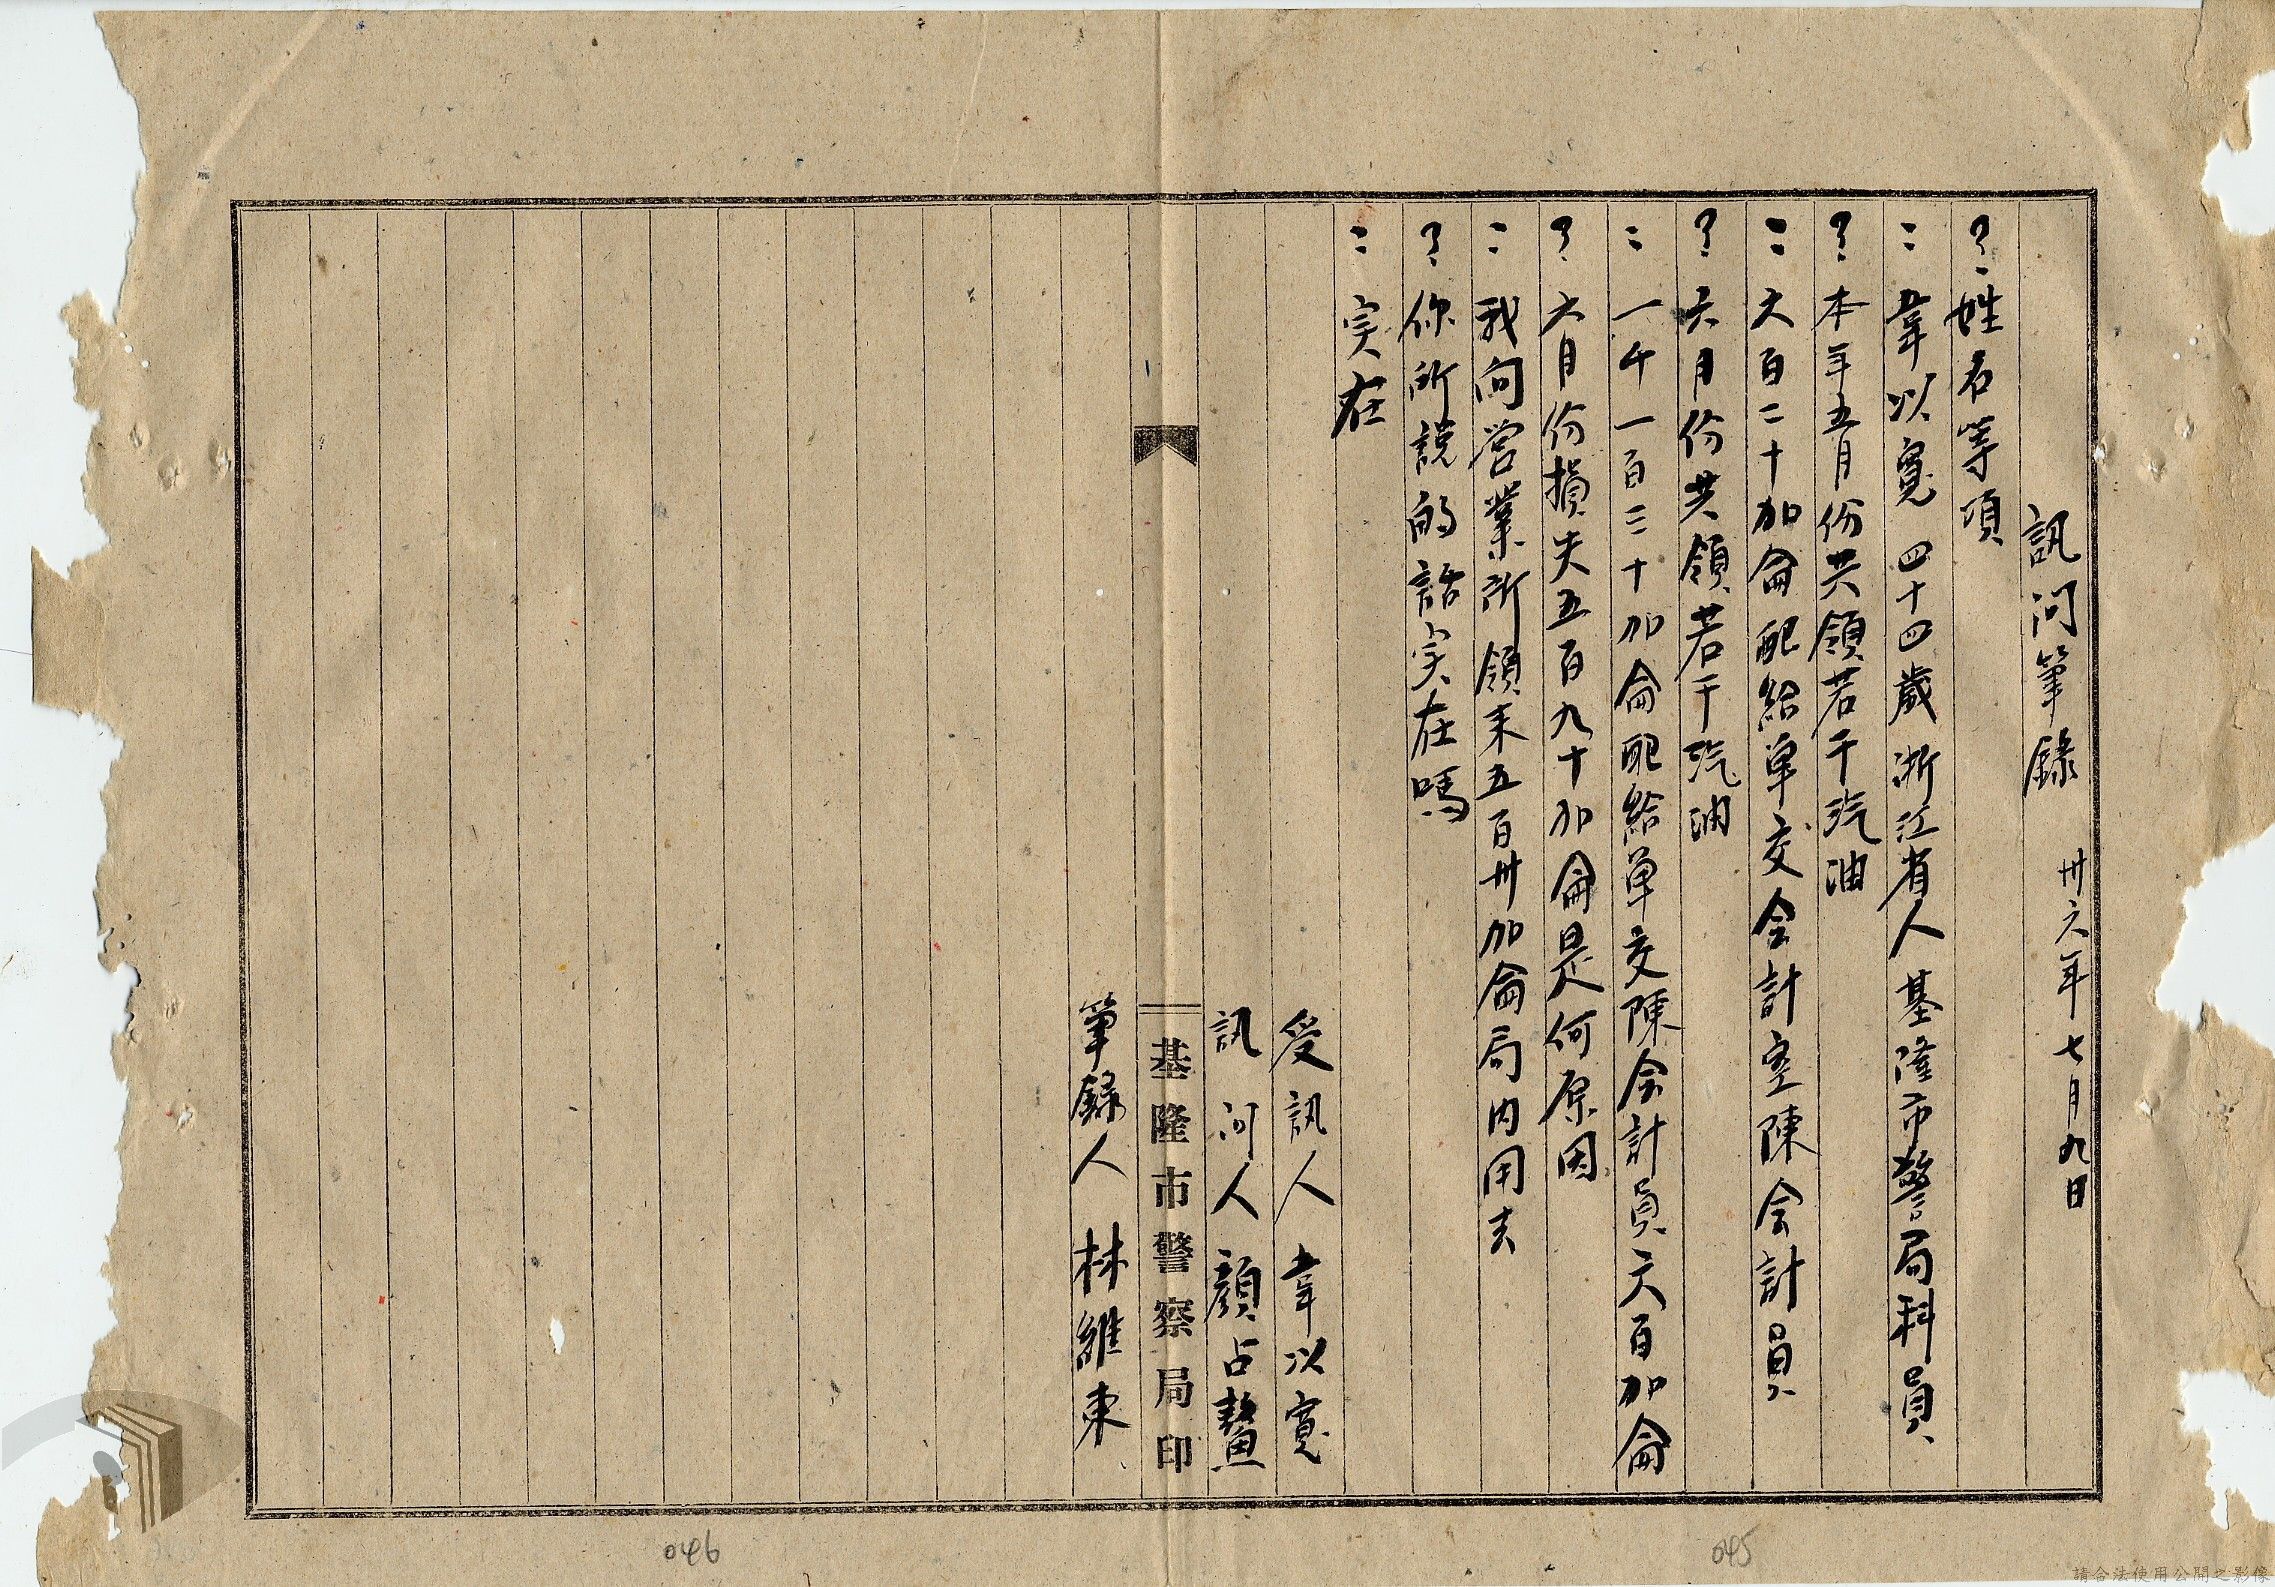 訊问筆錄
卅六年七月九日
？姓名等項
：韋以寬 四十四歲 浙江省人 基隆市警局科員
？本年五月份共領若干汽油
：六百二十加侖配給单交会計室陳会計員
？六月份共領若干汽油
：一千一百三十加侖配給单交陳会計員六百加侖
？六月份損失五百九十加侖是何原因
：我向营業所領来五百卅加侖局内用去
？你所説的話实在嗎
：实在
受訊人 韋以寬
訊问人 顏占鰲
基隆市警察局印
筆錄人 林維東
046
045
請合法使用公開之影像